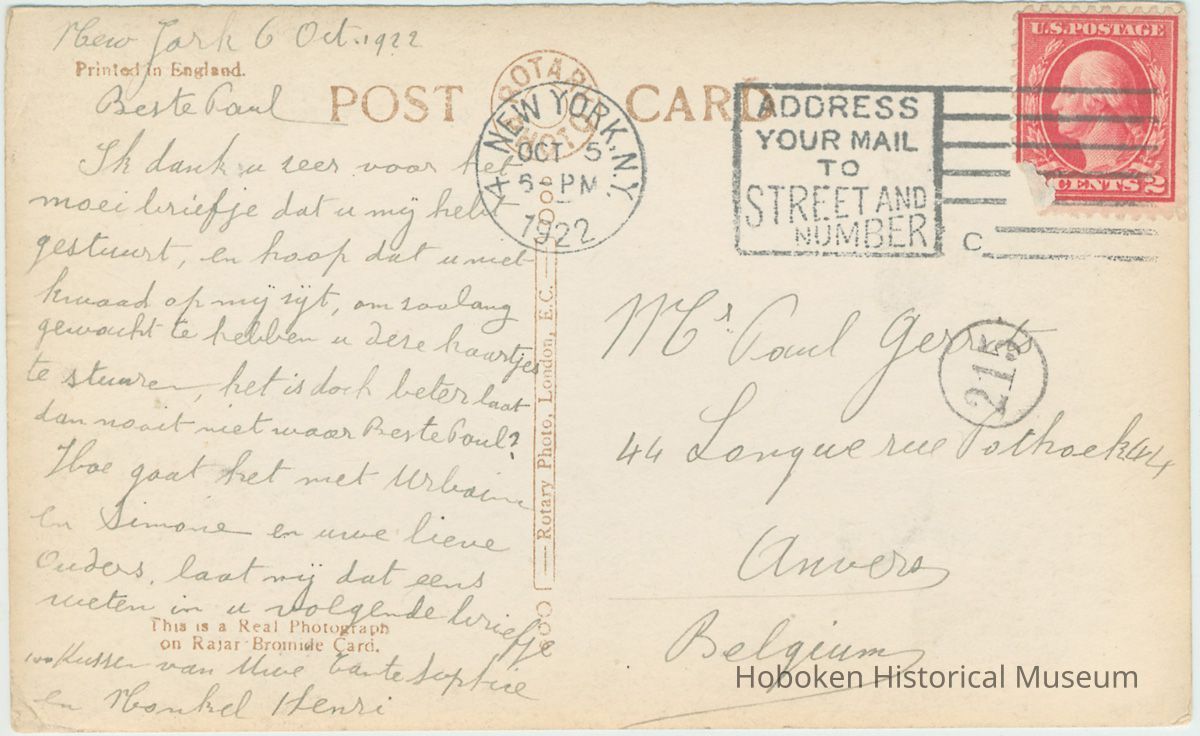 New York 6 Oct. 1922
Printed in England.
Beste Paul
POST CARD
ROTARY PHOTO
NEW YORK, N.Y.
OCT 5
6 - PM
1922
ADDRESS
YOUR MAIL
TO
STREET AND
NUMBER
C
U.S. POSTAGE
CENTS 2
Ik dank u zeer voor het
moei briefje dat u mij hebt
gestuurt, en hoop dat u niet
kwaad op mij zijt, om zoolang
gewacht te hebben u deze kaartjes
te sturen, het is doch beter laat
dan nooit niet waar Beste Paul?
Hoe gaat het met Urbain
en Simone en uwe lieve
Ouders, laat mij dat eens
weten in u volgende briefje
This is a Real Photograph
on Rajar Bromide Card.
100 Kussen van Uwe tante Sophie
en Nonkel Henri
Rotary Photo, London, E.C.
Mr Paul Gerrits
215
44 Longue rue Pothoek 44
Anvers
Belgium
Hoboken Historical Museum